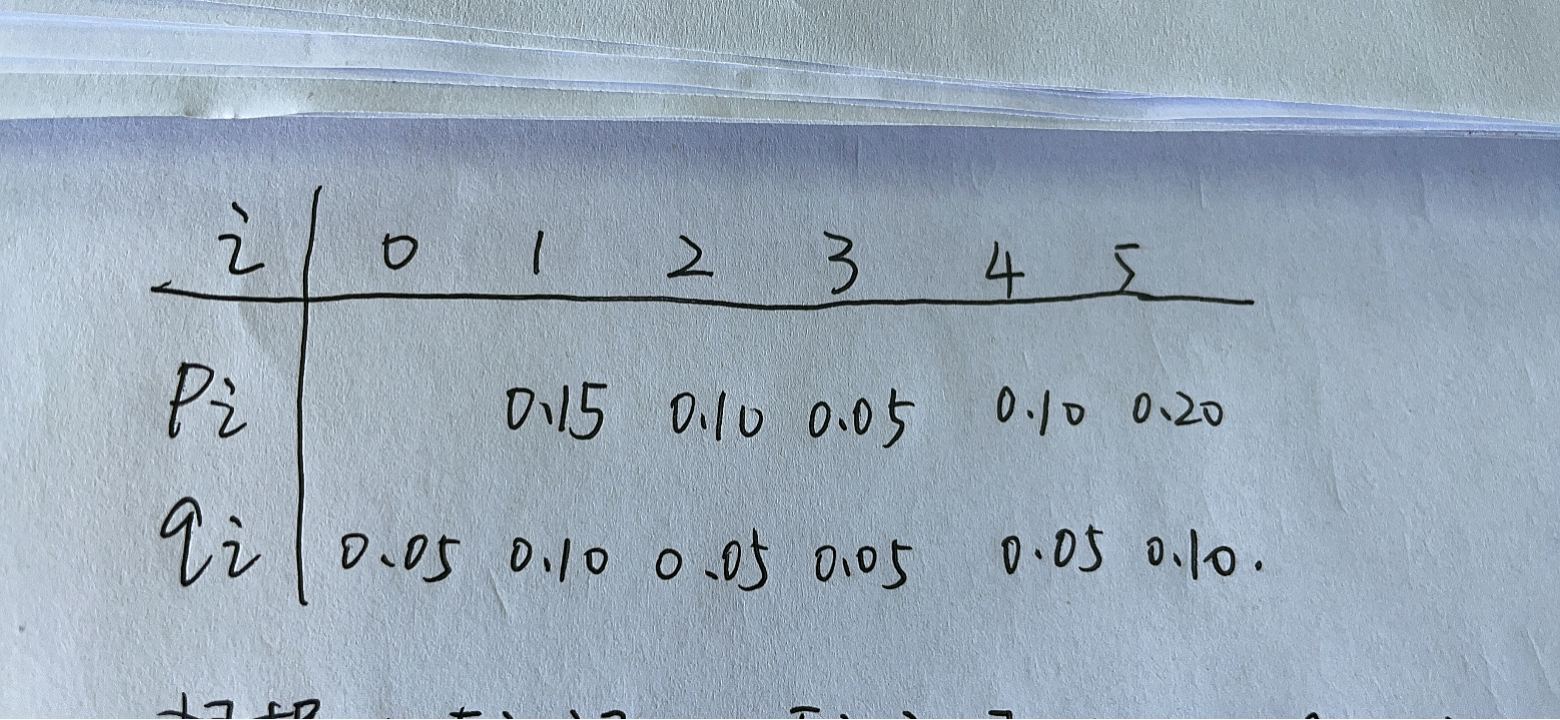 i 0 1 2 3 4 5
Pi 0.15 0.10 0.05 0.10 0.20
qi 0.05 0.10 0.05 0.05 0.05 0.10.